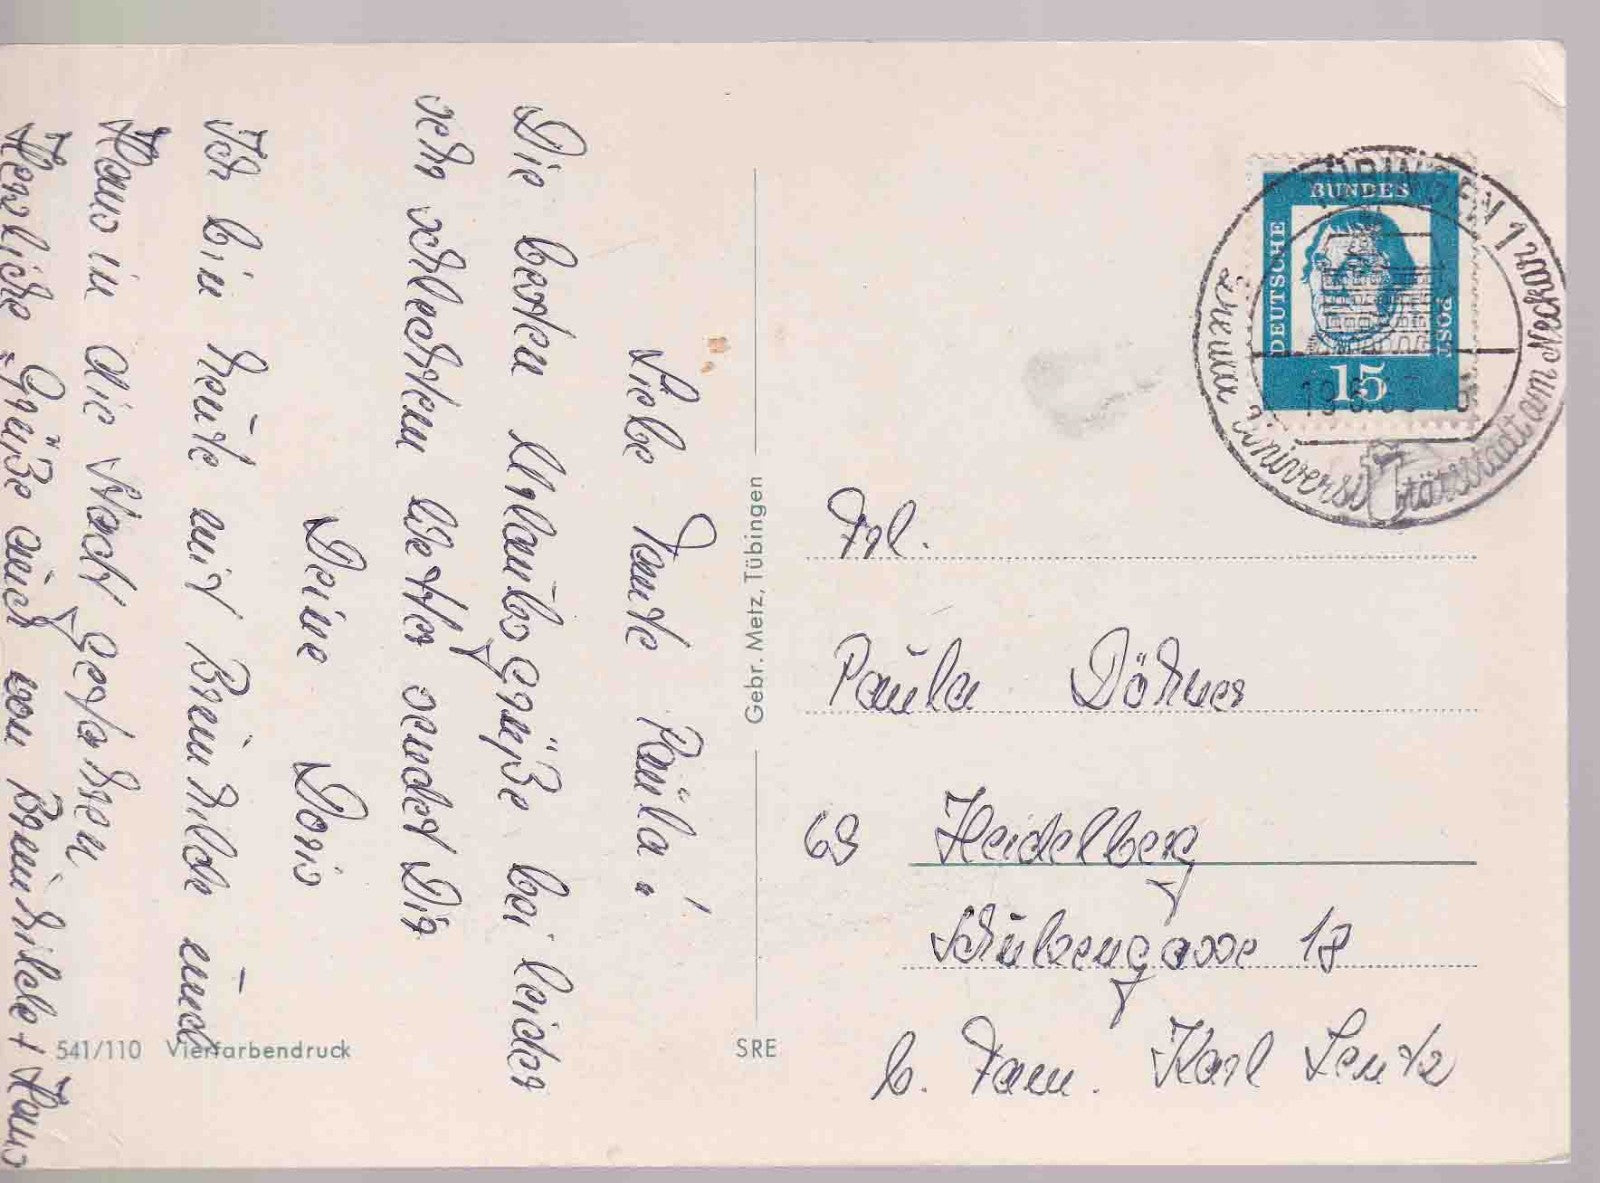 Liebe Tante Paula!
Die besten Urlaubsgrüße bei leider
sehr schlechtem Wetter sendet Dir
Deine Doris
Ich bin heute mit Brunhilde und
Hans in die Stadt gefahren.
Herzliche Grüße auch von Brunhilde + Hans
Gebr. Metz, Tübingen
541/110 Vierfarbendruck
SRE
TÜBINGEN 1
Universitätsstadt am Neckar
DEUTSCHE BUNDES POST
15
Frl.
Paula Döhner
69 Heidelberg
18
b. Fam. Karl Lentz